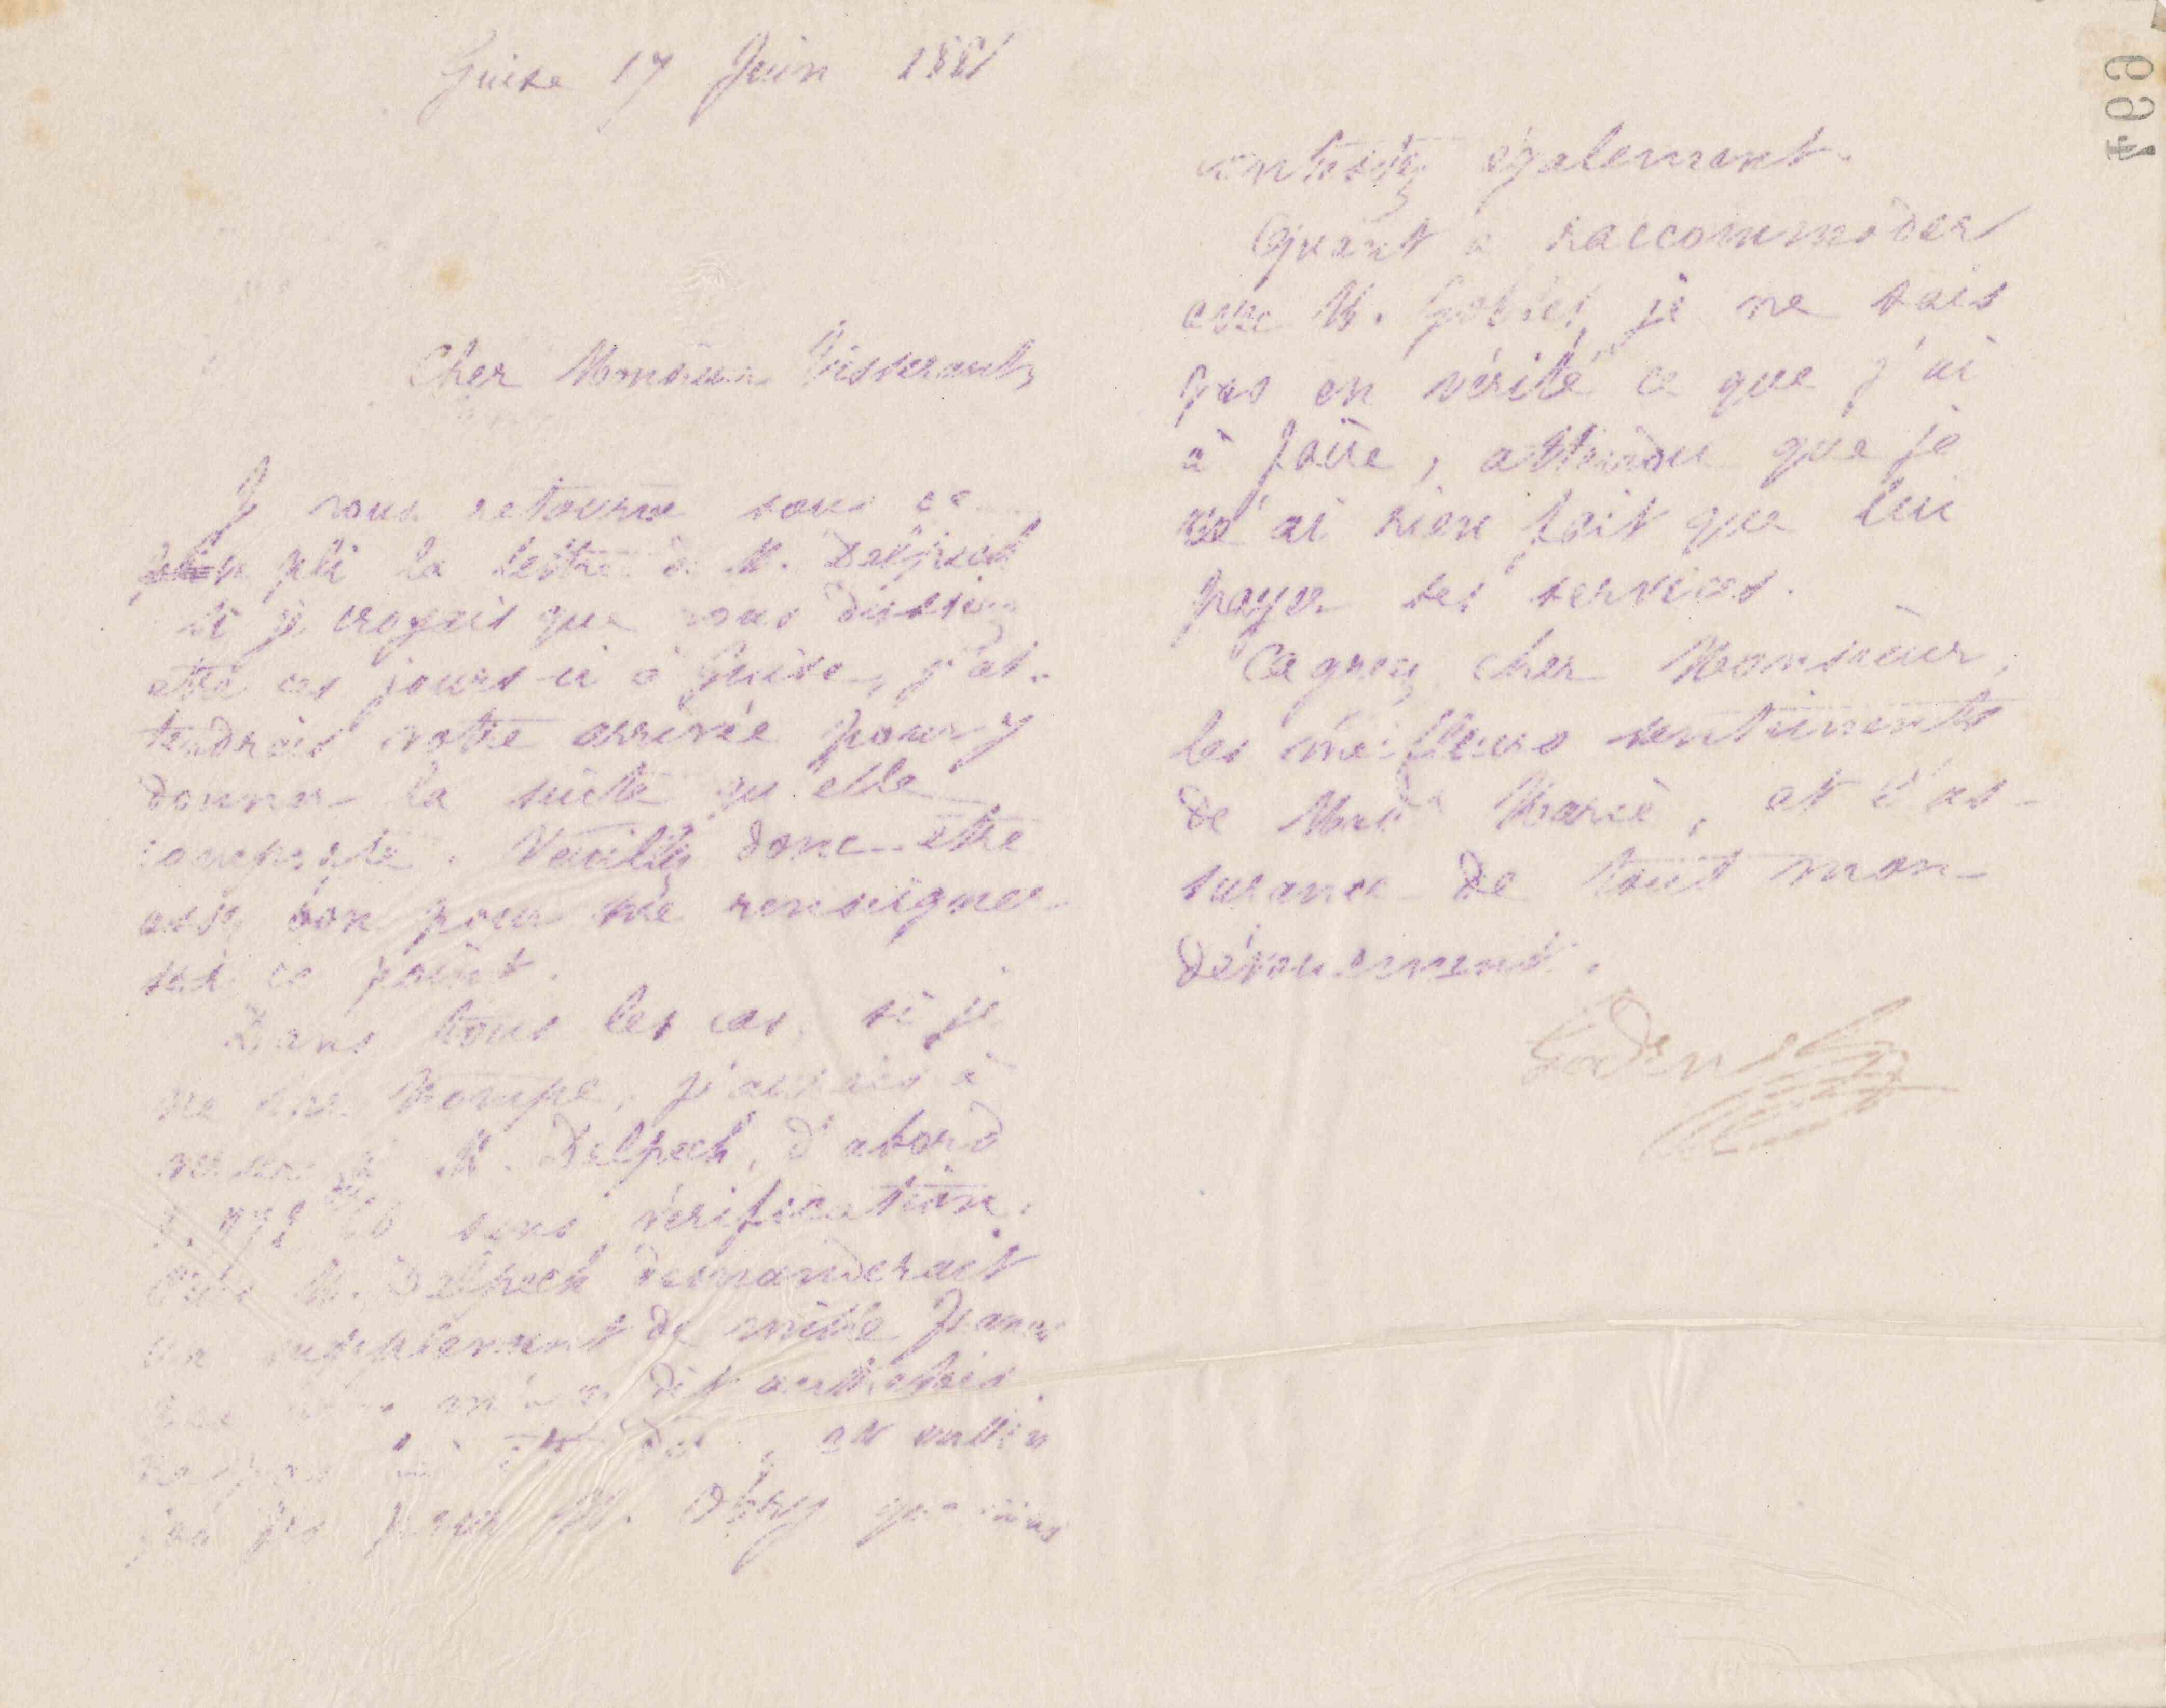 Guise 17 Juin 1881
Cher Monsieur Tisserant,
Je vous retourne sous ce
pli la lettre de M. Delpech
si je croyais que vous dussiez
être ces jours-ci à Guise, j'at-
tendrais votre arrivée pour y
donner la suite qu'elle
comporte. Veuillez donc être
assez bon pour me renseigner
sur ce point.
Dans tous les cas, si je
ne me trompe, j'aurais à
verser à M. Delpech, d'abord
sans vérification.
Puis M. Delpech demanderait
un supplément de mille francs
dit autrefois
et enfin
pour M.
contestez également.
Quant à raccommoder
avec M. je ne sais
pas en vérité ce que j'ai
à faire, attendu que je
n'ai rien fait que lui
payer ses services.
Agréez, cher Monsieur,
les meilleurs sentiments
de Mad Marie, et l'as-
surance de tout mon
dévouement.
Godin
694